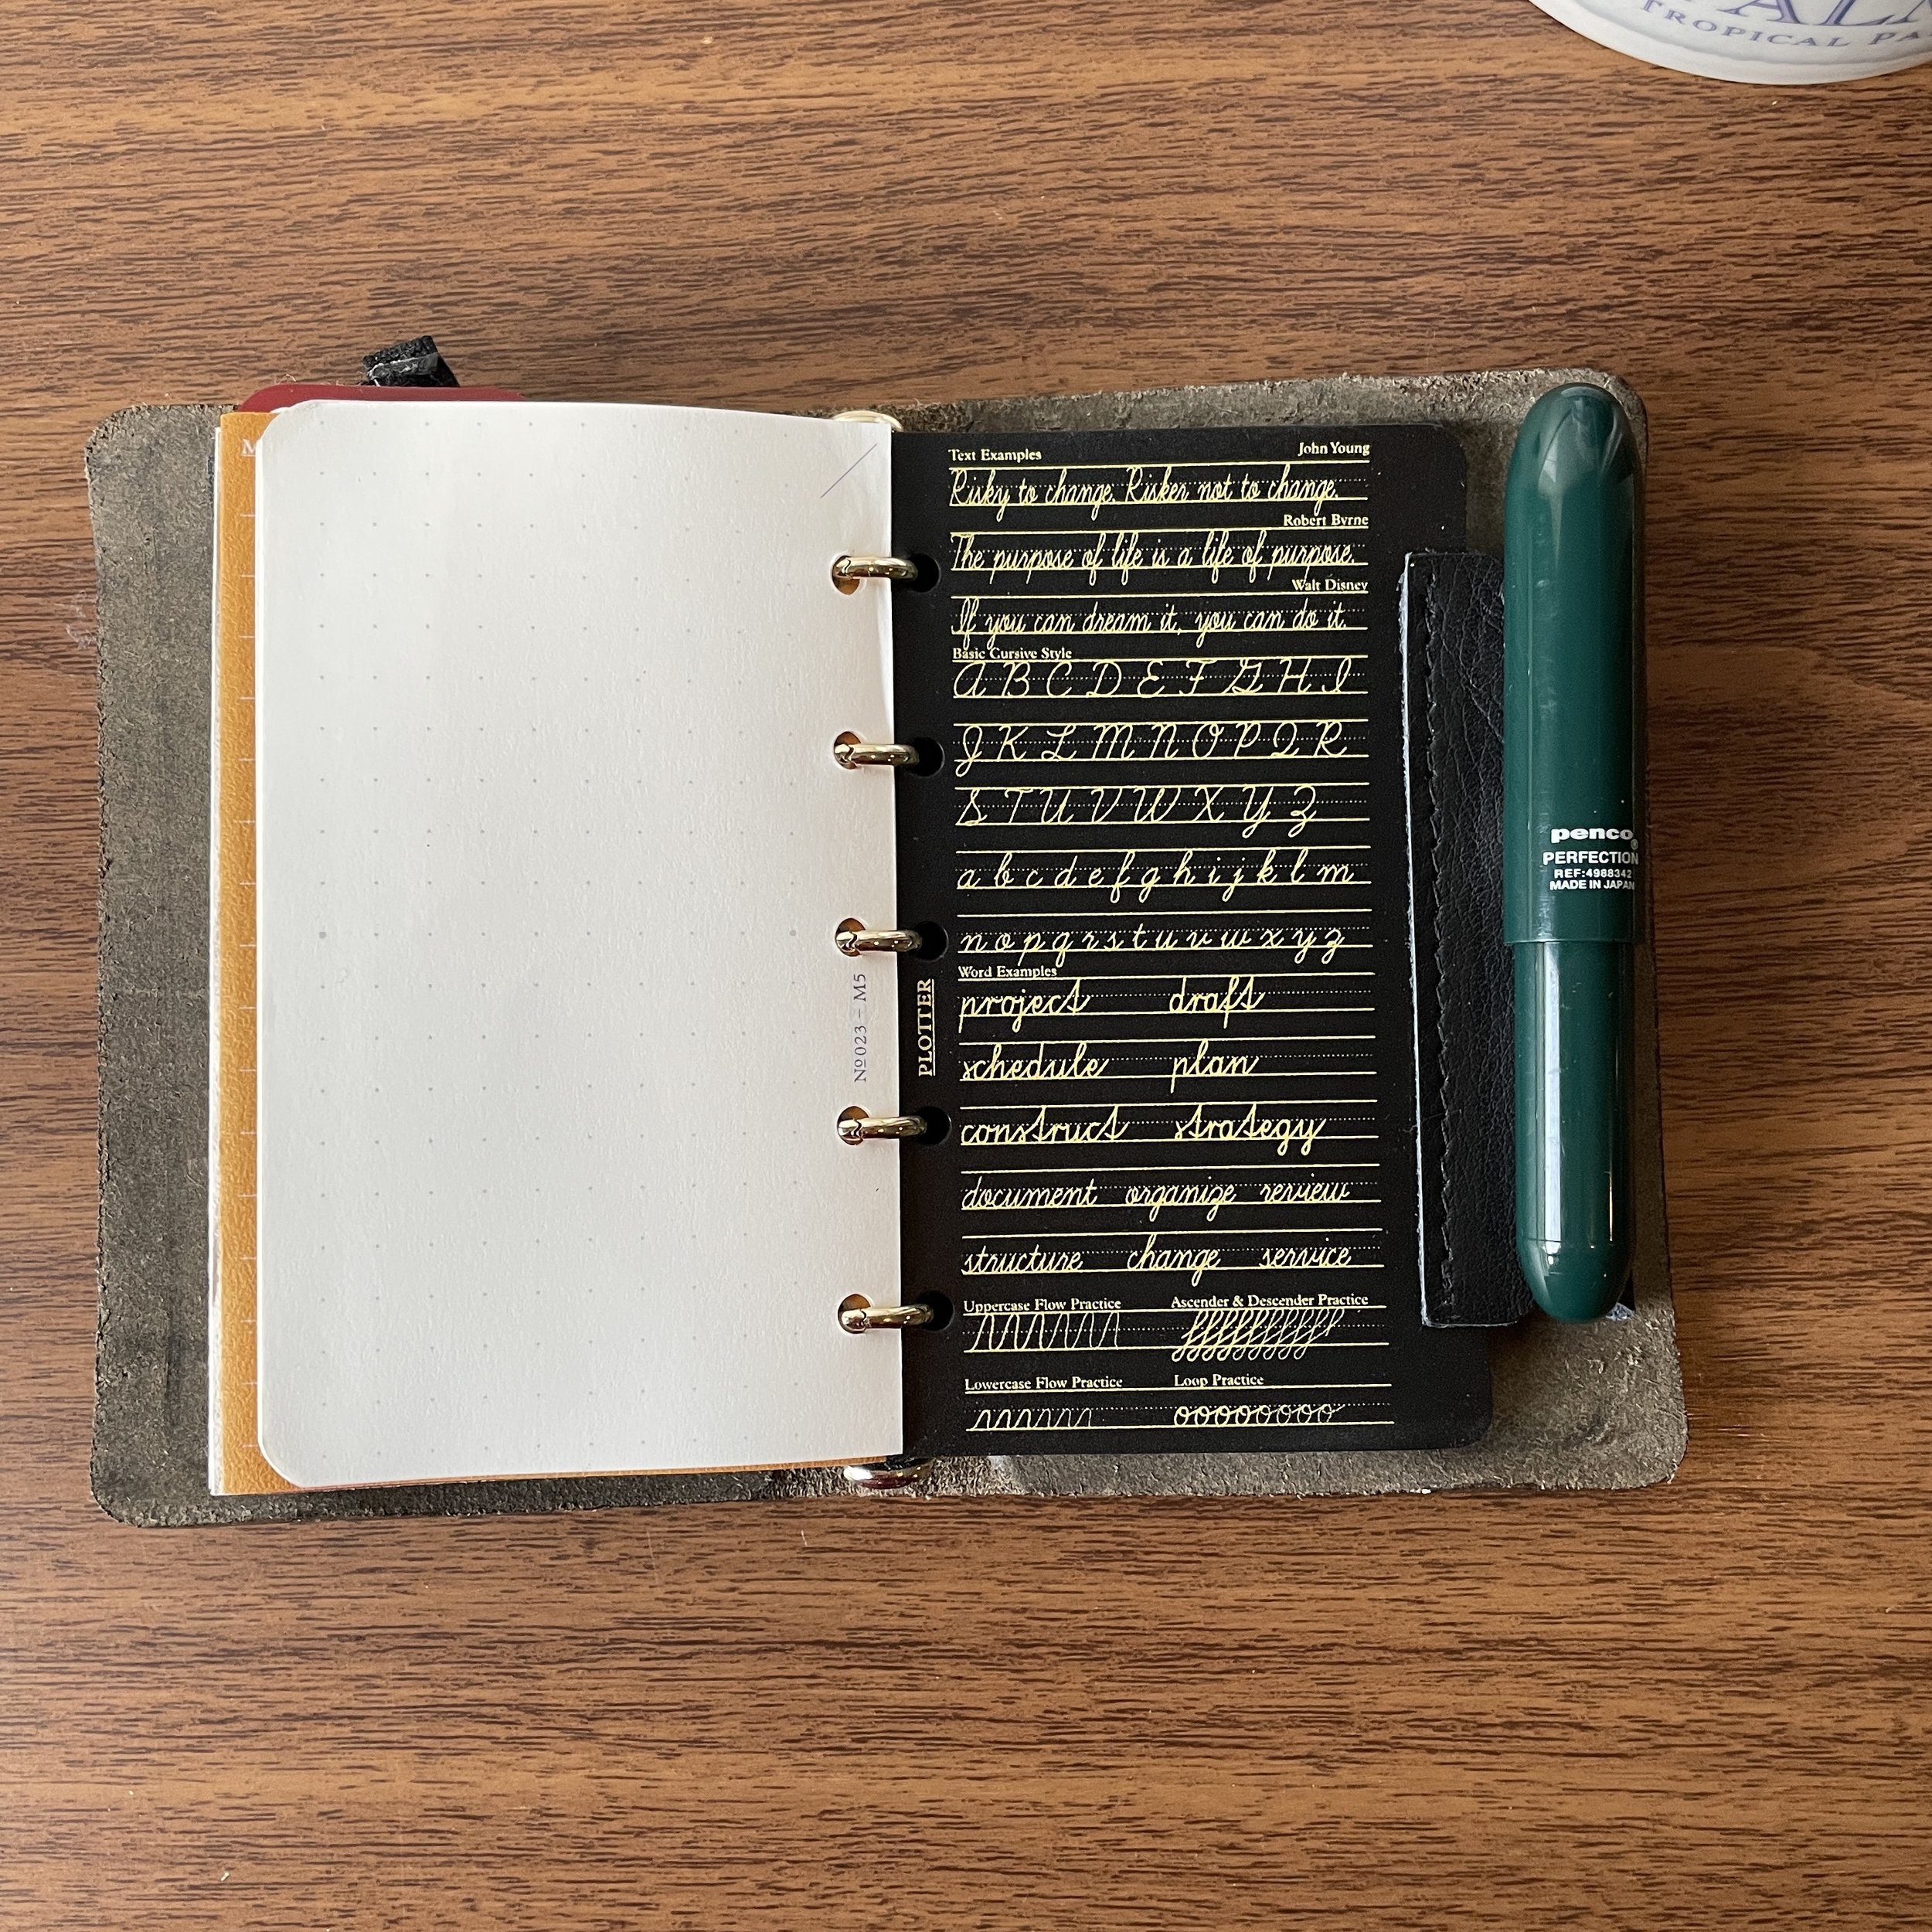 ALM
TROPICAL PA
M
Text Examples John Young
Risky to change. Risker not to change.
Robert Byrne
The purpose of life is a life of purpose.
Walt Disney
If you can dream it, you can do it.
Basic Cursive Style
A B C D E F G H I
J K L M N O P Q R
S T U V W X Y Z
a b c d e f g h i j k l m
n o p q r s t u v w x y z
Word Examples
project draft
schedule plan
construct strategy
document organize review
structure change service
Uppercase Flow Practice Ascender & Descender Practice
Lowercase Flow Practice Loop Practice
oooooooo
№023 – M5
PLOTTER
penco®
PERFECTION
REF:4988342
MADE IN JAPAN